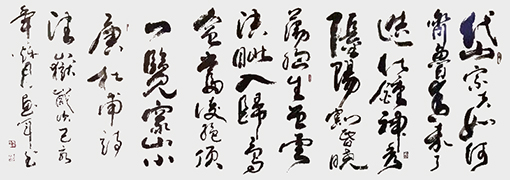 岱宗夫如何
齊魯青未了
造化鍾神秀
陰陽割昏曉
蕩胸生曾雲
決眦入歸鳥
會當凌絕頂
一覽眾山小
唐杜甫詩
望嶽歲次己亥
年